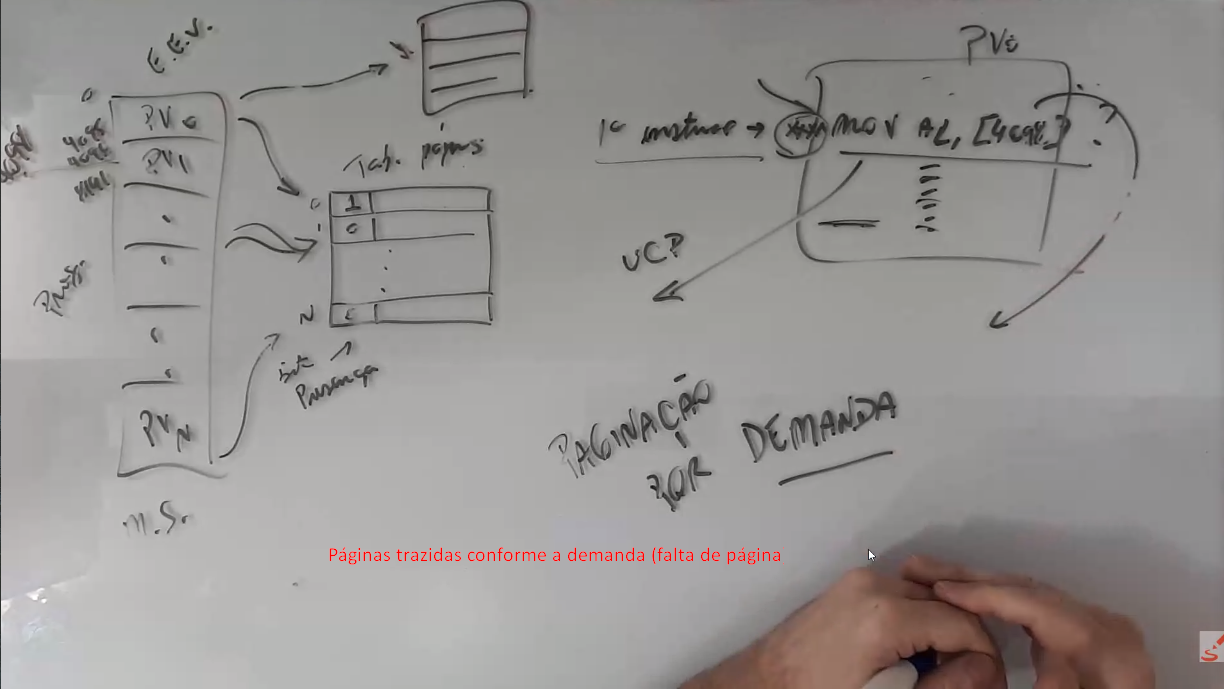 E.E.V.
0
PV0
4095
4096
PV1
8191
PVN
M.S.
Tab. páginas
0
1
1
0
N
0
bit
Presença
PV0
1ª instrução → MOV AL, [4096]
UCP
PAGINAÇÃO
POR DEMANDA
Páginas trazidas conforme a demanda (falta de página